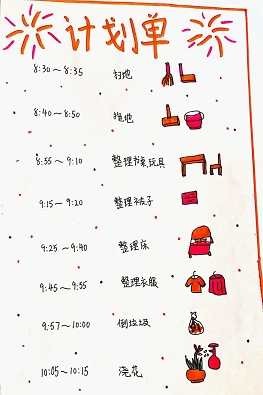 计划单
8:30～8:35 扫地
8:40～8:50 拖地
8:55～9:10 整理书桌玩具
9:15～9:20 整理被子
9:25～9:40 整理床
9:45～9:55 整理衣服
9:57～10:00 倒垃圾
10:05～10:15 浇花